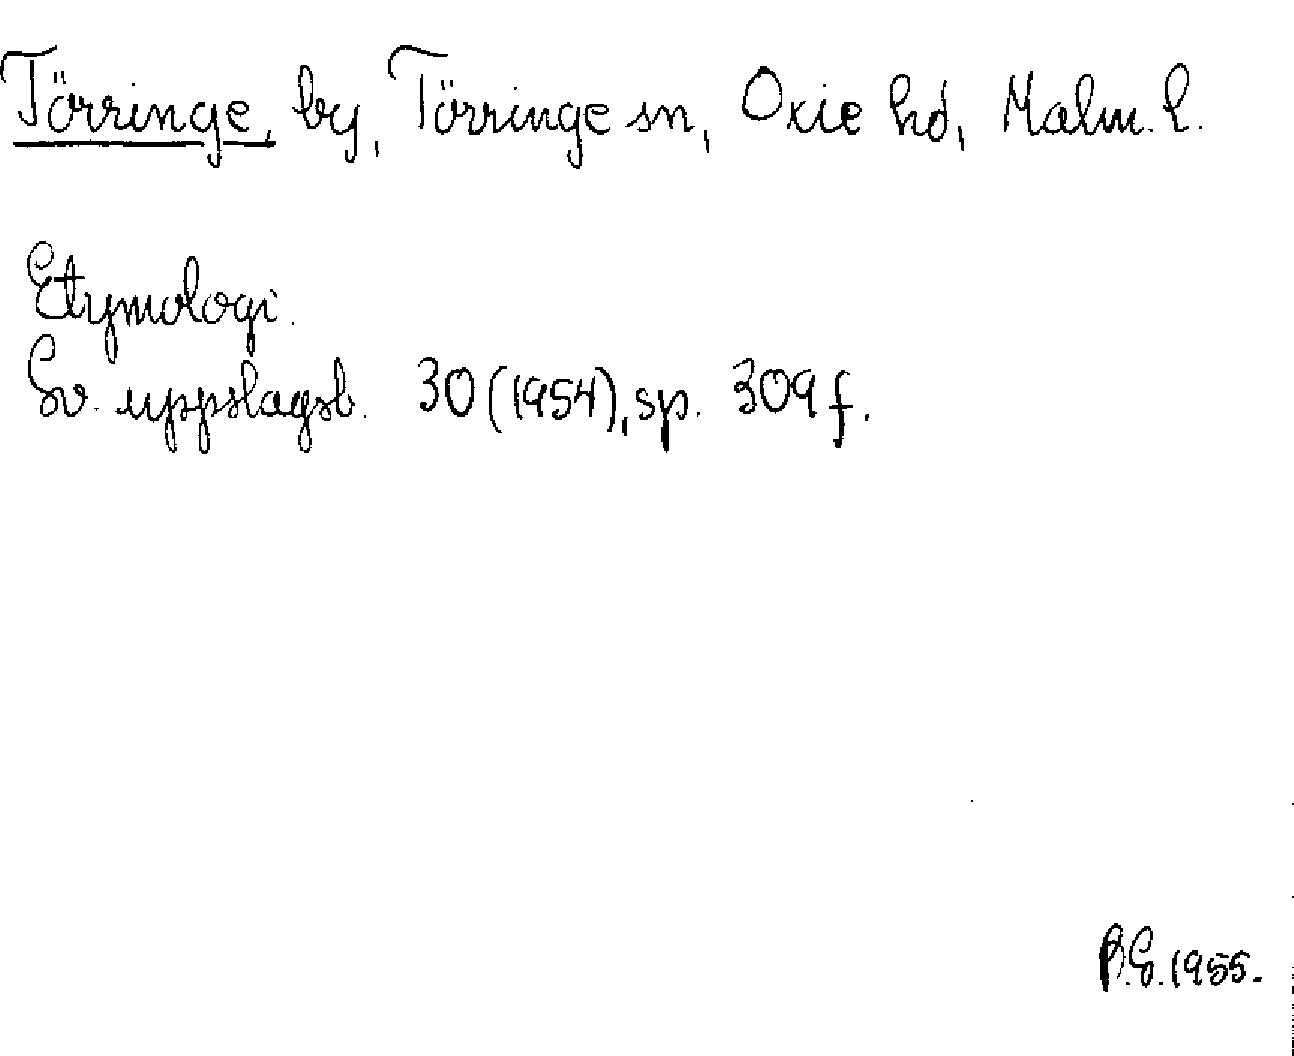 Törringe, by, Törringe sn, Oxie hd, Malm. l.
Etymologi.
Sv. uppslagsb. 30 (1954), sp. 309 f.
B.E. 1955.